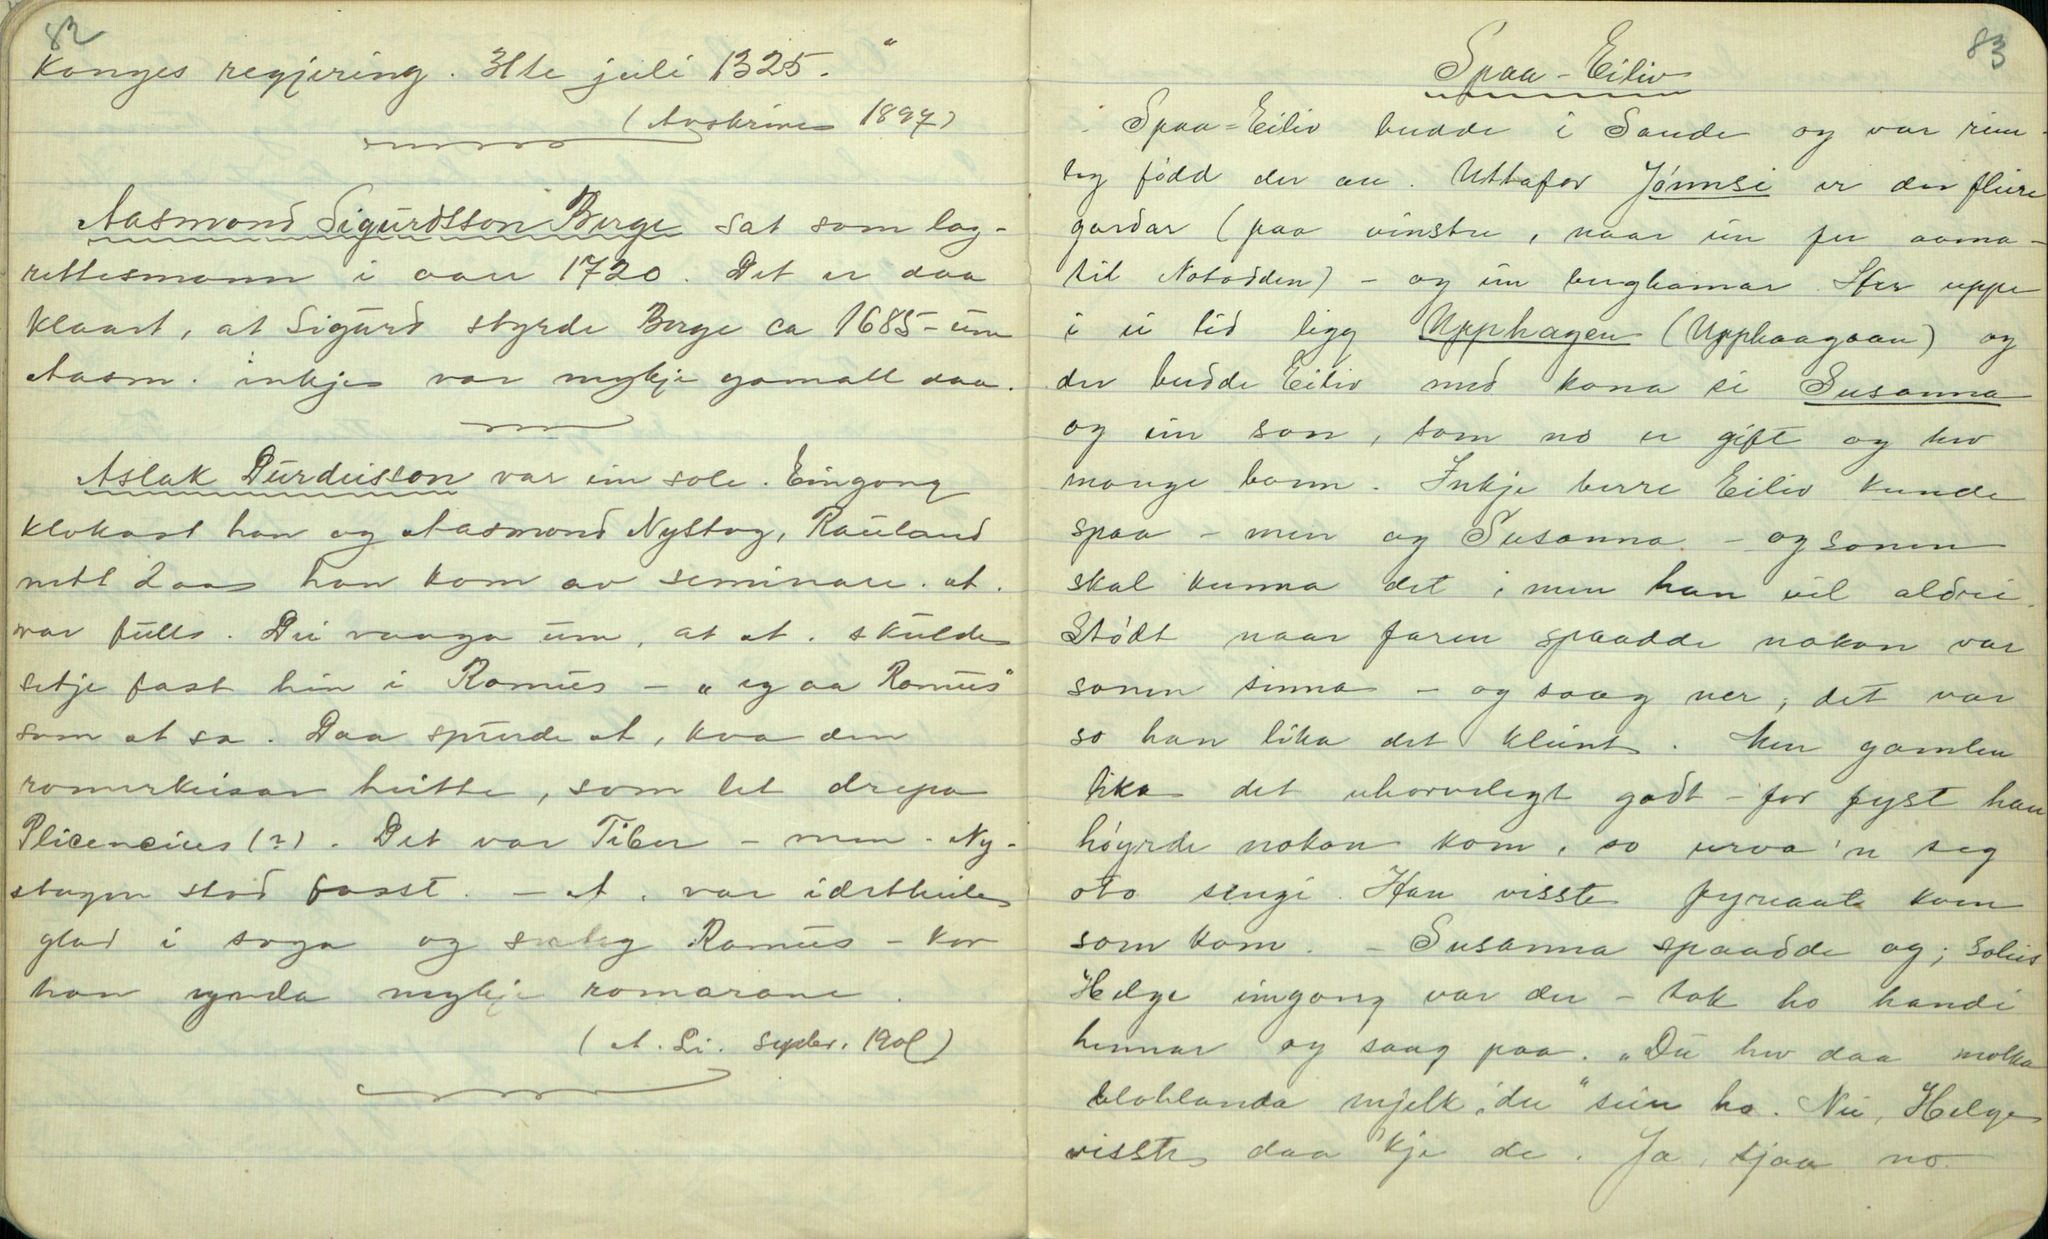 82
Konges regjering. 3die juli 1325."
(Avskrive 1897)
Aasmond Sigurdsson Berge sat som lag-
rettesmann i aari 1720. Det er daa
klaart, at Sigurd styrde Berge ca 1685 - um
Aasm. inkje var mykje gamall daa.
Aslak Durdeisson var ein sole. Eingong
klokast han og Aasmond Nystog, Rauland
nett daa han kom av seminare. A.
var fulls. Dei vaaga um, at A. skulde
setje fast hin i Romus - "eg aa Romus"
som A sa. Daa spurde A, kva den
romerkeisar heitte, som let drepa
Plicencius (?). Det var Tiber - men Ny-
stogen stod fasst. - A. var idetheile
glad i soga og Romus - kor
han ynda mykje romarane.
(A. Li. Septbr. 1901)
83
Spaa-Eiliv
Spaa-Eiliv budde i Saude og var rim-
leg fødd der au. Uttafor Jønnsi er der fleire
gardar (paa vinstre, naar ein fer aama-
til Notodden) - og ein berghamar. Her uppe
i ei lid ligg Upphagen (Upphaagaan) og
der budde Eiliv med kona si Susanna
og ein son, som no er gift og hev
mange bonn. Inkje berre Eiliv kunde
spaa - men og Susanna - og sonen
skal kunna det, men han vil aldrei.
Stødt naar faren spaadde nokon var
sonen sinna - og saag ner; det var
so han lika det kleint. Men gamlen
lika det uhorvelegt godt - for fyst han
høyrde nokon kom, so urva 'n seg
oto sengi. Han visste fyreaat kven
som kom. - Susanna spaadde og;
Helge eingong var der - tok ho handi
hennar og saag paa. "Du hev daa molka
bloblanda mjelk, du" sein ho. Nei, Helge
visste daa kje de. Ja, sjaa no